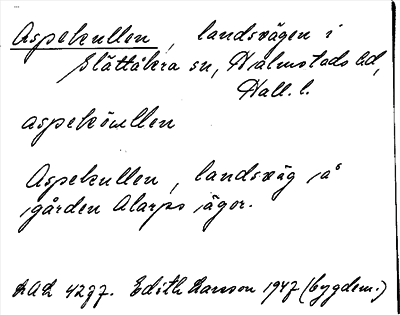 Aspekullen, landsvägen i
Slättåkra sn, Halmstads hd,
Hall. l.
aspekùllen
Aspekullen, landsväg på
gården Alarps ägor.
LAL 4237. Edith Larsson 1947 (bygdem.)